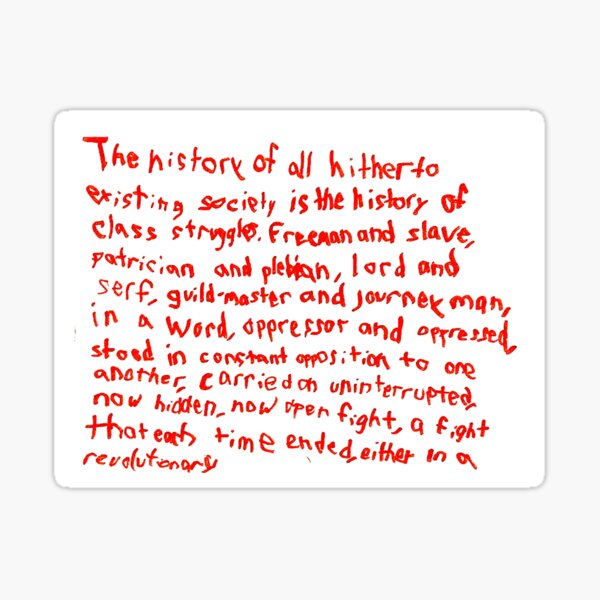 The history of all hitherto
existing society is the history of
class struggles. Freeman and slave,
patrician and plebian, lord and
serf, guild-master and journeyman,
in a word, oppressor and oppressed,
stood in constant opposition to one
another, carried on uninterrupted,
now hidden, now open fight, a fight
that each time ended, either in a
revolutionary